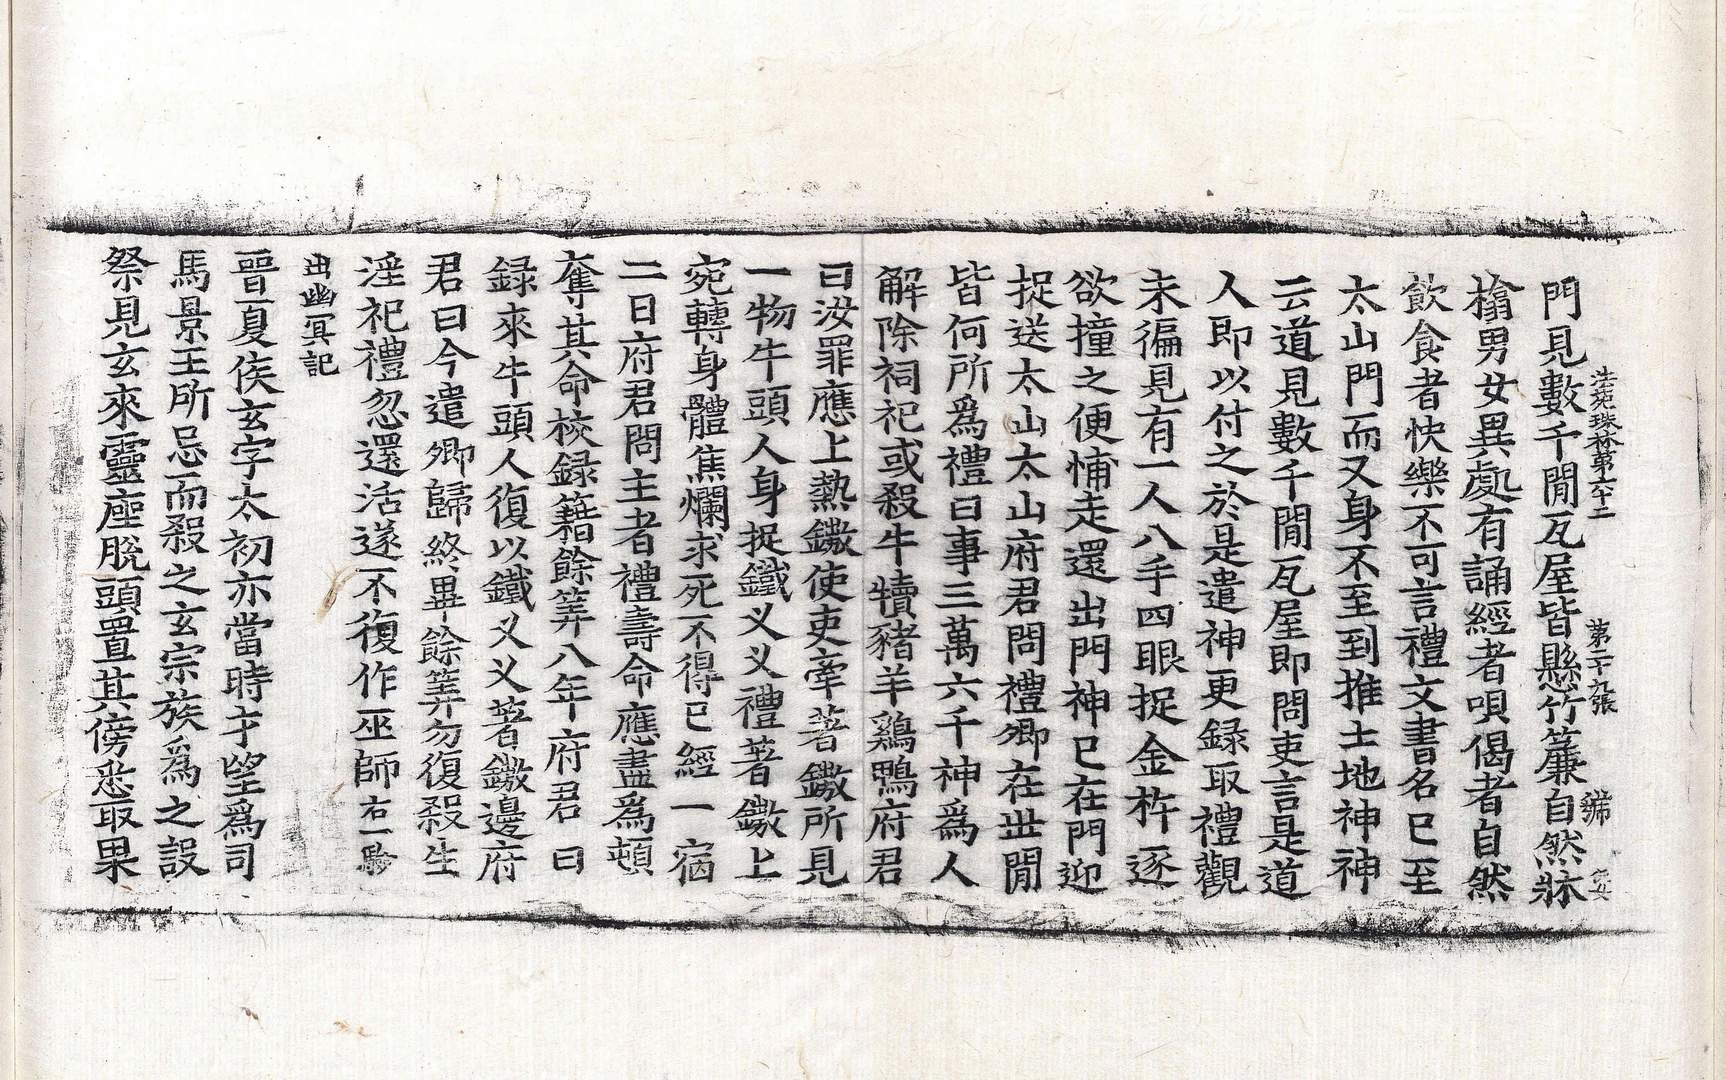 法苑珠林第六十二　第二十九張　號
門見數千閒瓦屋皆懸竹簾自然牀
榻男女異處有誦經者唄偈者自然
飲食者快樂不可言禮文書名已至
太山門而又身不至到推土地神神
云道見數千閒瓦屋即問吏言是道
人即以付之於是遣神更録取禮觀
未徧見有一人八手四眼捉金杵逐
欲撞之便怖走還出門神已在門迎
捉送太山太山府君問禮卿在世閒
皆何所爲禮曰事三萬六千神爲人
解除祠祀或殺牛犢豬羊鷄鴨府君
曰汝罪應上熱鏊使吏牽著鏊所見
一物牛頭人身捉鐵叉叉禮著鏊上
宛轉身體焦爛求死不得已經一宿
二日府君問主者禮壽命應盡爲頓
奪其命校録籍餘筭八年府君曰
録來牛頭人復以鐵叉叉著鏊邊府
君曰今遣卿歸終畢餘筭勿復殺生
淫祀禮忽還活遂不復作巫師右一驗
出幽冥記
晉夏侯玄字太初亦當時才望爲司
馬景王所忌而殺之玄宗族爲之設
祭見玄來靈座脫頭置其傍悉取果